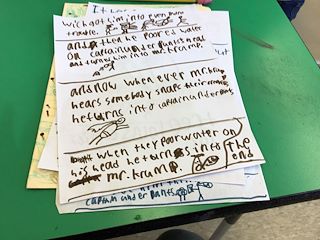 It
wich got him into even more
trouble.
and then he poored water
on captain under pants head
and turned him into mr. krump.
and now when ever mr. krup
hears somebody snape their
he turns into captain under pants
when they poor water on
his head he turns into the
mr. krump. end
captain under pants